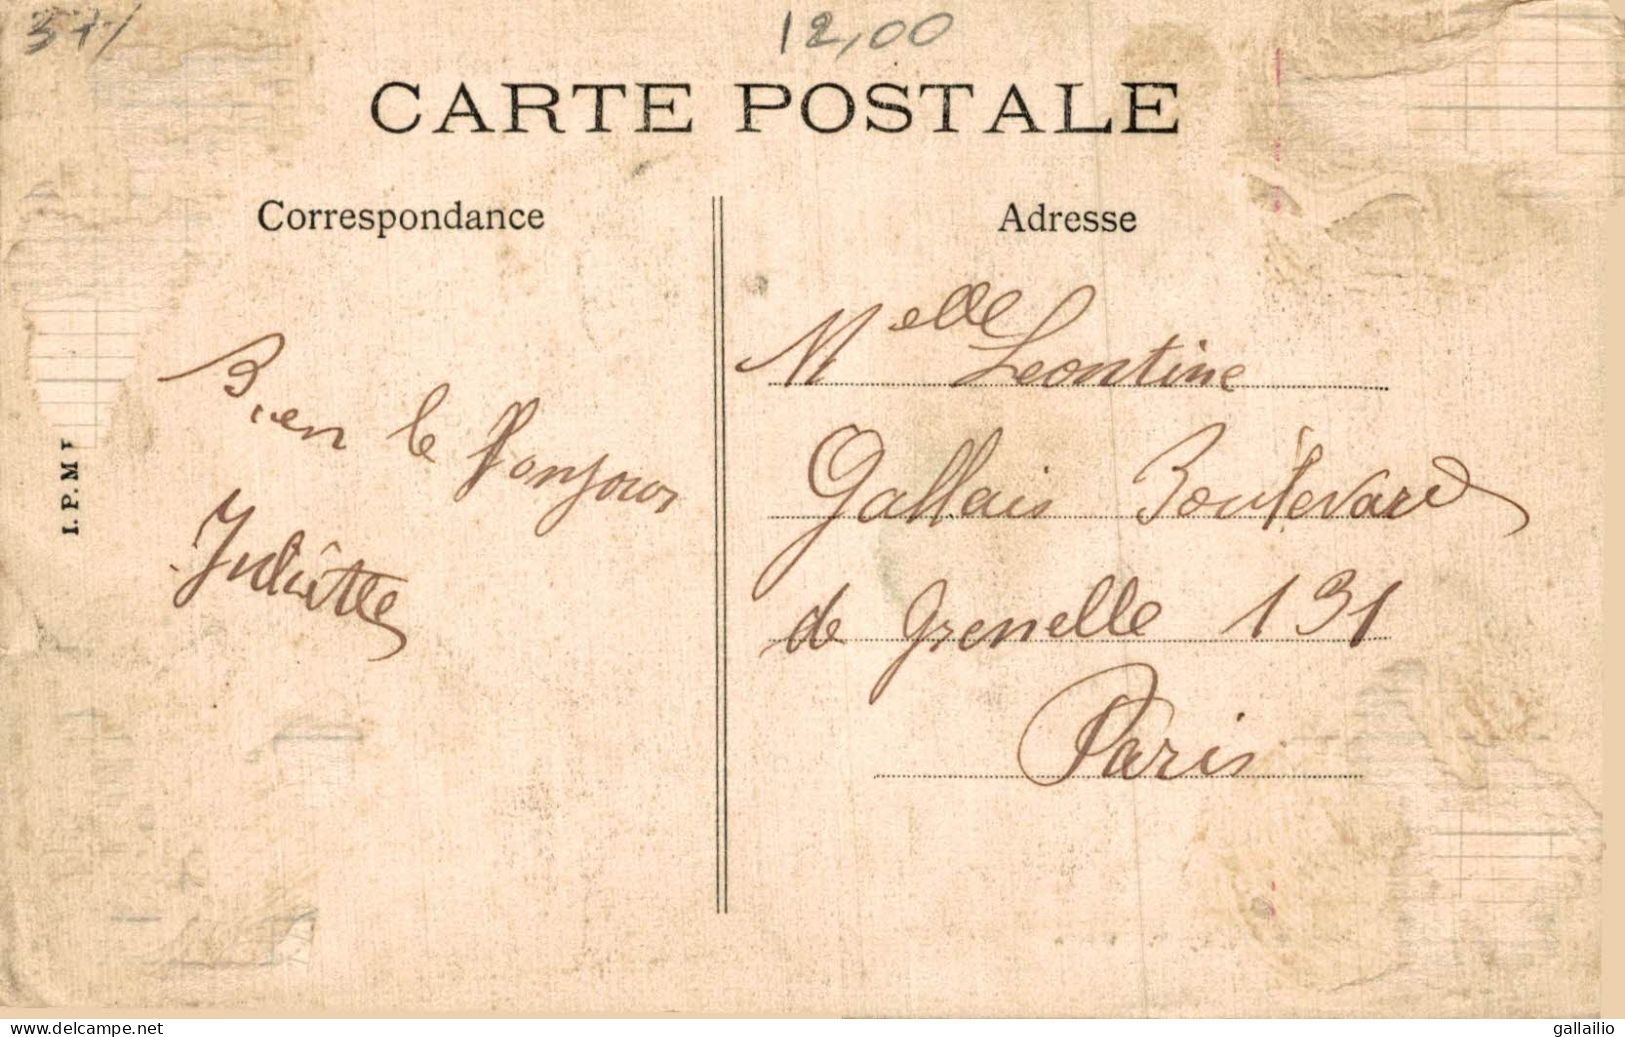 37/
12,00
CARTE POSTALE
Correspondance
Adresse
Bien le bonjour
Juliette
Melle Leontine
Gallais Boulevard
de Grenelle 131
Paris
I.P.M
www.delcampe.net
gallailio